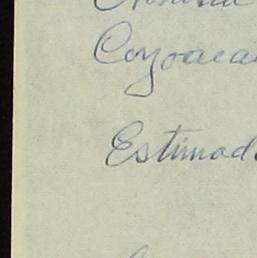 Coyoaca
Estimad